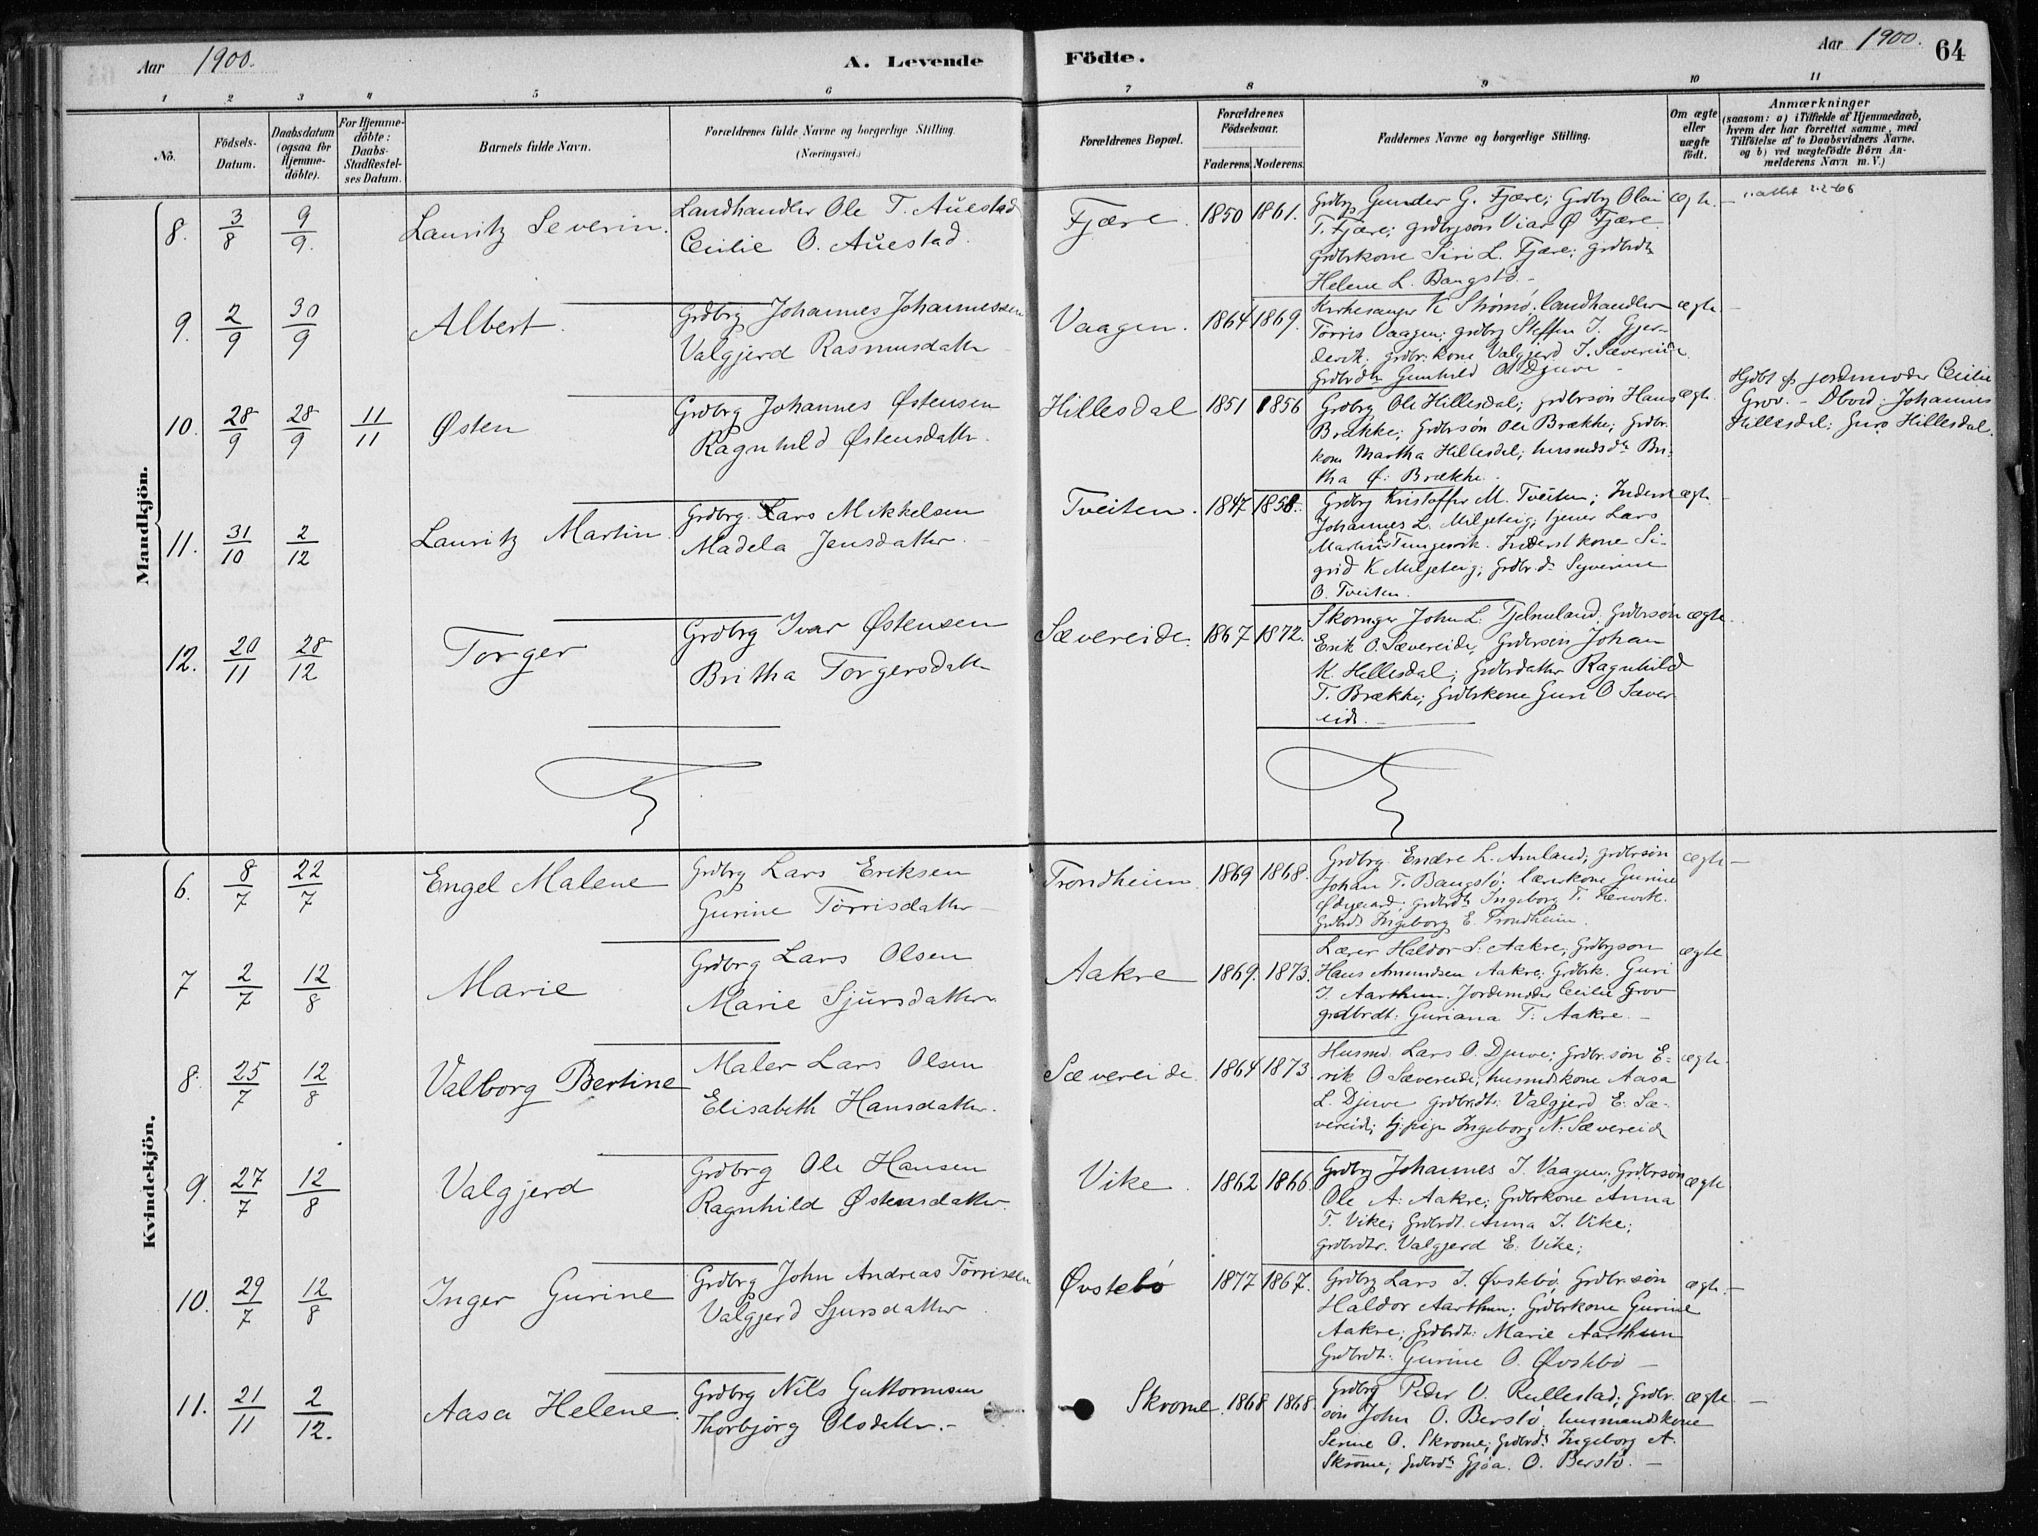 Aar 1900.
A. Levende Födte.
Aar 1900. 64
1 2 3 4 5 6 7 8 9 10 11
No.
Födsels-Datum.
Daabsdatum (ogsaa for Hjemme-döbte).
For Hjemme-döbte: Daabs-Stadfæstel-ses Datum.
Barnets fulde Navn.
Forældrenes fulde Navne og borgerlige Stilling. (Næringsvei.)
Forældrenes Bopæl.
Forældrenes Födselsaar.
Faderens. Moderens.
Faddernes Navne og borgerlige Stilling.
Om ægte eller uægte födt.
Anmærkninger
(saasom: a) i Tilfælde af Hjemmedaab,
hvem der har forrettet samme, med
Tilföielse af to Daabsvidners Navne,
og b) ved uægtefödte Börn An-
melderens Navn m. V.)
Mandkjön.
8. 3/8 9/9. Lauritz Severin. Landhandler Ole T. Auestad
Cecilie O. Auestad.
Fjære. 1850 1861. Grdbrg Gunder G. Fjære; Grdbrg Olai
T. Fjære; grdbrsön Viar Ø Fjære.
Grdbrkone Siri L. Fjære; grdbrdtr
Helene L. Bangstö. -
ægte. -
9. 2/9 30/9 Albert. Grdbrg Johannes Johannessen
Valgjerd Rasmusdatter
Vaagen. 1864 1869. Kirkesanger K Strömö. landhandler
Törres Vaagen; grdbrg Steffen I. Gjer-
devik; grdbr.kone Valgjerd I. Sævereide
Grdbrdtr Gunhild O. Djuve -
ægte. -
10. 28/9 28/9 11/11 Østen Grdbrg Johannes Østensen
Ragnhild Østensdatter.
Hillesdal 1851 1856 Grdbrg Ole Hillesdal; grdbrsön Hans
Brække; Grdbrsön Ole Brække; Grdbr.
kone Martha Hillesdal; husmdsdtr Bri-
tha Ø. Brække.
ægte. Hjdbt af jordemoder Cecilie
Grov. - Dbvid: Johannes
Hillesdal; Guro Hillesdal.
11. 31/10 2/12 Lauritz Martin. Grdbrg. Lars Mikkelsen
Madela Jensdatter.
Tveiten. 1847 1858. Grdbrg Kristoffer M. Tveiten; Inderst
Johannes L. Miljeteig; tjener Lars
Martin Tungesvik. Inderstkone Si-
grid K Miljeteig; Grdbr.dtr Syverine
O. Tveiten.
ægte -
12. 20/11 28/12 Torger Grdbrg Ivar Østensen
Britha Torgersdatter
Sævereide. 1867 1872. Skomgr John L. Tjelmeland; Grdbrsön
Erik O. Sævereide; Grdbrsön Johan
K. Hillesdal; Grdbrdatter Ragnhild
T. Brække; Grdbrkone Guri O Sæver-
eide. -
ægte.
Kvindekjön.
6. 8/7 22/7 Engel Malene Grdbrg Lars Eriksen
Gurine Törrisdatter -
Trondheim. 1869 1868. Grdbrg. Endre L. Amland; grdbrsön
Johan T. Bangstö; lærerkone Gurine
Ødegaard; grdbrdtr Ingeborg T. Færevik.
Grdbrdtr Ingeborg E. Trondheim.
ægte -
7 2/7 12/8 Marie Grdbrg Lars Olsen
Marie Sjursdatter.
Aakre 1869. 1873. Lærer Haldor S. Aakre; Grdbrgsön
Hans Amundsen Aakre; Grdbrk. Guri
I. Aarthun. Jordemoder Cecilie Grov
grdbrdt: Guriana T. Aakre. -
ægte
8. 25/7 12/8 Valborg Bertine Maler Lars Olsen
Elisabeth Hansdatter.
Sævereide 1864 1873 Husmd. Lars O. Djuve; Grdbr.sön E-
rik O Sævereide; husmdskone Aasa
L. Djuve grdbrdt: Valgjerd E. Sæ-
vereide; tj.pige Ingeborg N. Sævereide
ægte.
9. 27/7 12/8 Valgjerd Grdbrg Ole Hansen
Ragnhild Østensdatter.
Vike 1862 1866 Grdbrg Johannes I. Vaagen; Grdbrsön
Ole A. Aakre; Grdbrkone Anna
T. Vike; Grdbrdt. Anna I. Vike;
Grdbrdtr. Valgjerd E. Vike;
ægte
10. 29/7 12/8 Inger Gurine Grdbrg John Andreas Törrissen
Valgjerd Sjursdatter
Øvstebö 1877 1867. Grdbrg Lars I. Øvstebö; Grdbr.sön
Haldor Aarthun; Grdbrkone Gurine
Aakre; Grdbrdt: Marie Aarthun
Grdbrdt: Gurine O. Øvstebö -
ægte. -
11. 21/11 2/12. Aasa Helene. Grdbrg Nils Guttormsen
Thorbjörg Olsdatter. -
Skrome. 1868 1868. Grdbrg Peder O. Rullestad; Grdbr.
sön John O. Berstö; husmandskone
Serine O. Skrome; Grdbrdtr Ingeborg A.
Skrome; Grdbrdtr Gjöa. O. Berstö. -
ægte. -